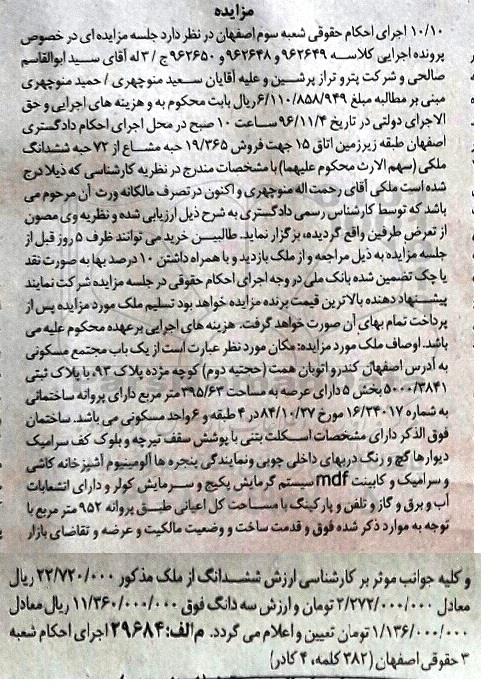 مزایده
۱۰/۱۰ اجرای احکام حقوقی شعبه سوم اصفهان در نظر دارد جلسه مزایده ای در خصوص
پرونده اجرایی کلاسه ۹۶۲۶۴۹ و ۹۶۲۶۴۸ و ۹۶۲۶۵۰ ج / ۳ له آقای سید ابوالقاسم
صالحی و شرکت پترو تراز پرشین و علیه آقایان سعید منوچهری / حمید منوچهری
مبنی بر مطالبه مبلغ ۶/۱۱۰/۸۵۸/۹۴۹ ریال بابت محکوم به و هزینه های اجرایی و حق
الاجرای دولتی در تاریخ ۹۶/۱۱/۴ ساعت ۱۰ صبح در محل اجرای احکام دادگستری
اصفهان طبقه زیرزمین اتاق ۱۵ جهت فروش ۱۹/۳۶۵ حبه مشاع از ۷۲ حبه ششدانگ
ملکی (سهم الارث محکوم علیهما) با مشخصات مندرج در نظریه کارشناسی که ذیلا درج
شده است ملکی آقای رحمت اله منوچهری و اکنون در تصرف مالکانه ورثه آن مرحوم می
باشد که توسط کارشناس رسمی دادگستری به شرح ذیل ارزیابی شده و نظریه وی مصون
از تعرض طرفین واقع گردیده، برگزار نماید. طالبین خرید می توانند ظرف ۵ روز قبل از
جلسه مزایده به ذیل مراجعه و از ملک بازدید و با همراه داشتن ۱۰ درصد بها به صورت نقد
یا چک تضمین شده بانک ملی در وجه اجرای احکام حقوقی در جلسه مزایده شرکت نمایند
پیشنهاد دهنده بالاترین قیمت برنده مزایده خواهد بود تسلیم ملک مورد مزایده پس از
پرداخت تمام بهای آن صورت خواهد گرفت. هزینه های اجرایی بر عهده محکوم علیه می
باشد. اوصاف ملک مورد مزایده: مکان مورد نظر عبارت است از یک باب مجتمع مسکونی
به آدرس اصفهان کندرو اتوبان همت (حجتیه دوم) کوچه مژده پلاک ۹۳، با پلاک ثبتی
۵۰۰۰/۳۸۴۱ بخش ۵ دارای عرصه به مساحت ۳۹۵/۶۳ متر مربع دارای پروانه ساختمانی
به شماره ۱۶/۲۴۰۱۷ مورخ ۸۴/۱۰/۲۷ در ۴ طبقه و ۶ واحد مسکونی می باشد. ساختمان
فوق الذکر دارای مشخصات اسکلت بتنی با پوشش سقف تیرچه و بلوک کف سرامیک
دیوارها گچ و رنگ دربهای داخلی چوبی و نمایندگی پنجره ها آلومینیوم آشپزخانه کاشی
و سرامیک و کابینت mdf سیستم گرمایش پکیج و سرمایش کولر و دارای انشعابات
آب و برق و گاز و تلفن و پارکینگ با مساحت کل اعیانی طبق پروانه ۹۵۲ متر مربع با
توجه به موارد ذکر شده فوق و قدمت ساخت و وضعیت مالکیت و عرضه و تقاضای بازار
و کلیه جوانب موثر بر کارشناسی ارزش ششدانگ از ملک مذکور ۲۲/۷۲۰/۰۰۰ ریال
معادل ۲/۲۷۲/۰۰۰/۰۰۰ تومان و ارزش سه دانگ فوق ۱۱/۳۶۰/۰۰۰/۰۰۰ ریال معادل
۱/۱۳۶/۰۰۰/۰۰۰ تومان تعیین و اعلام می گردد. م الف: ۲۹۶۸۴ اجرای احکام شعبه
۳ حقوقی اصفهان (۳۸۲ کلمه، ۴ کادر)